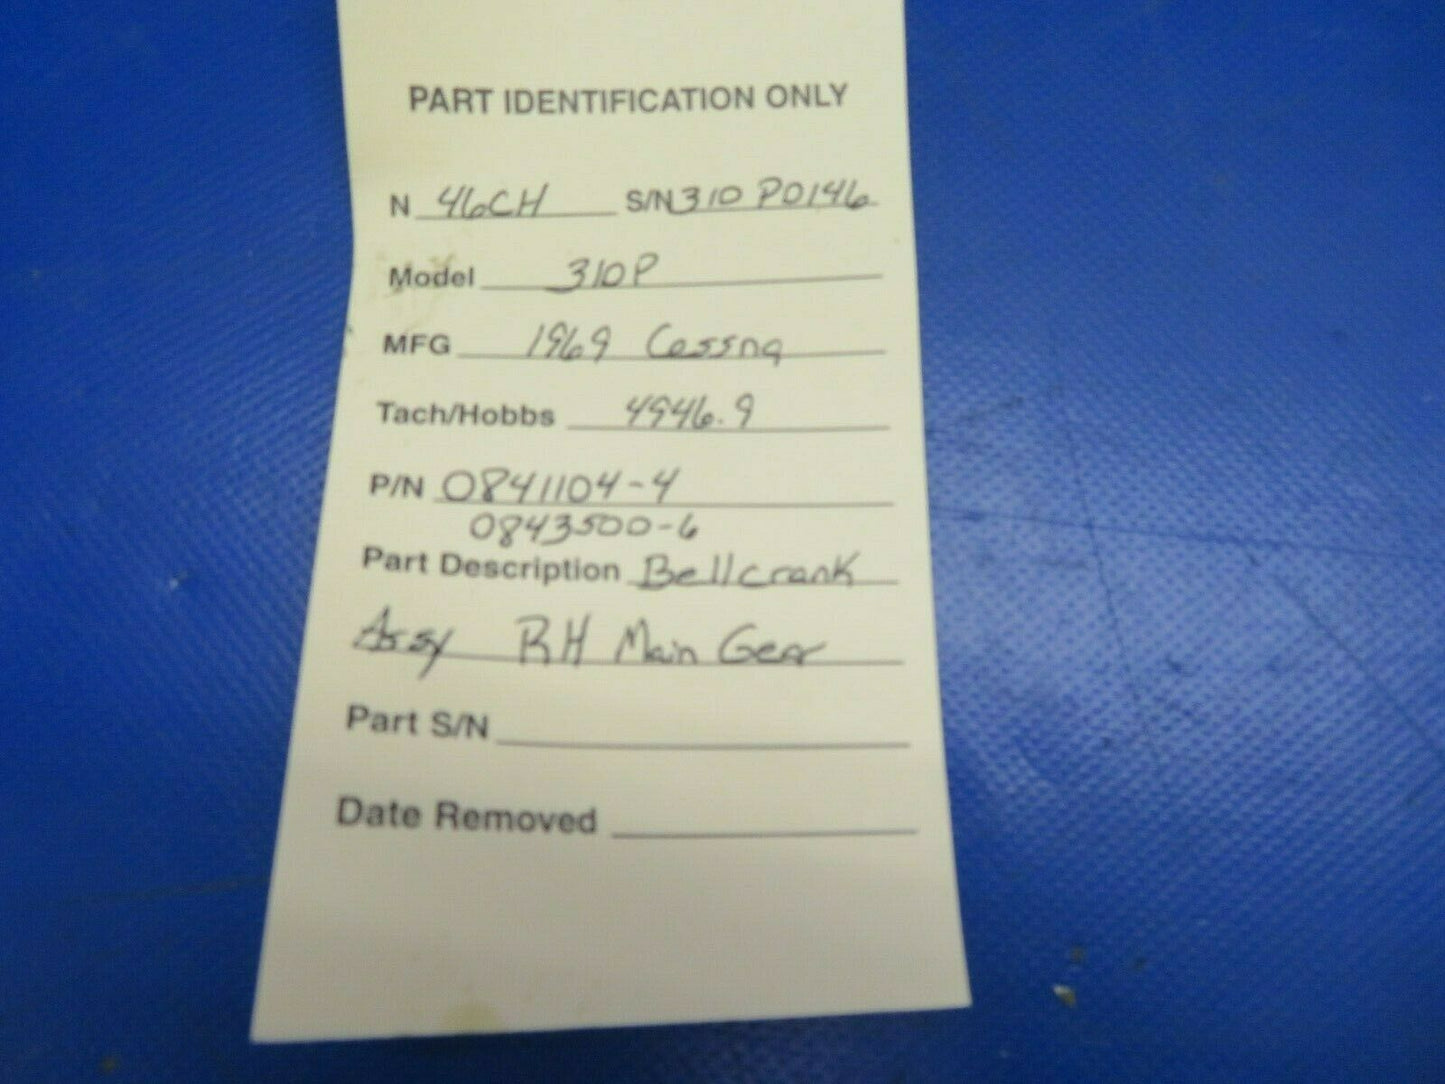 PART IDENTIFICATION ONLY
N 46CH S/N 310P0146
Model 310P
MFG 1969 Cessna
Tach/Hobbs 4946.9
P/N 0841104-4
0843500-6
Part Description Bellcrank
Assy RH Main Gear
Part S/N
Date Removed